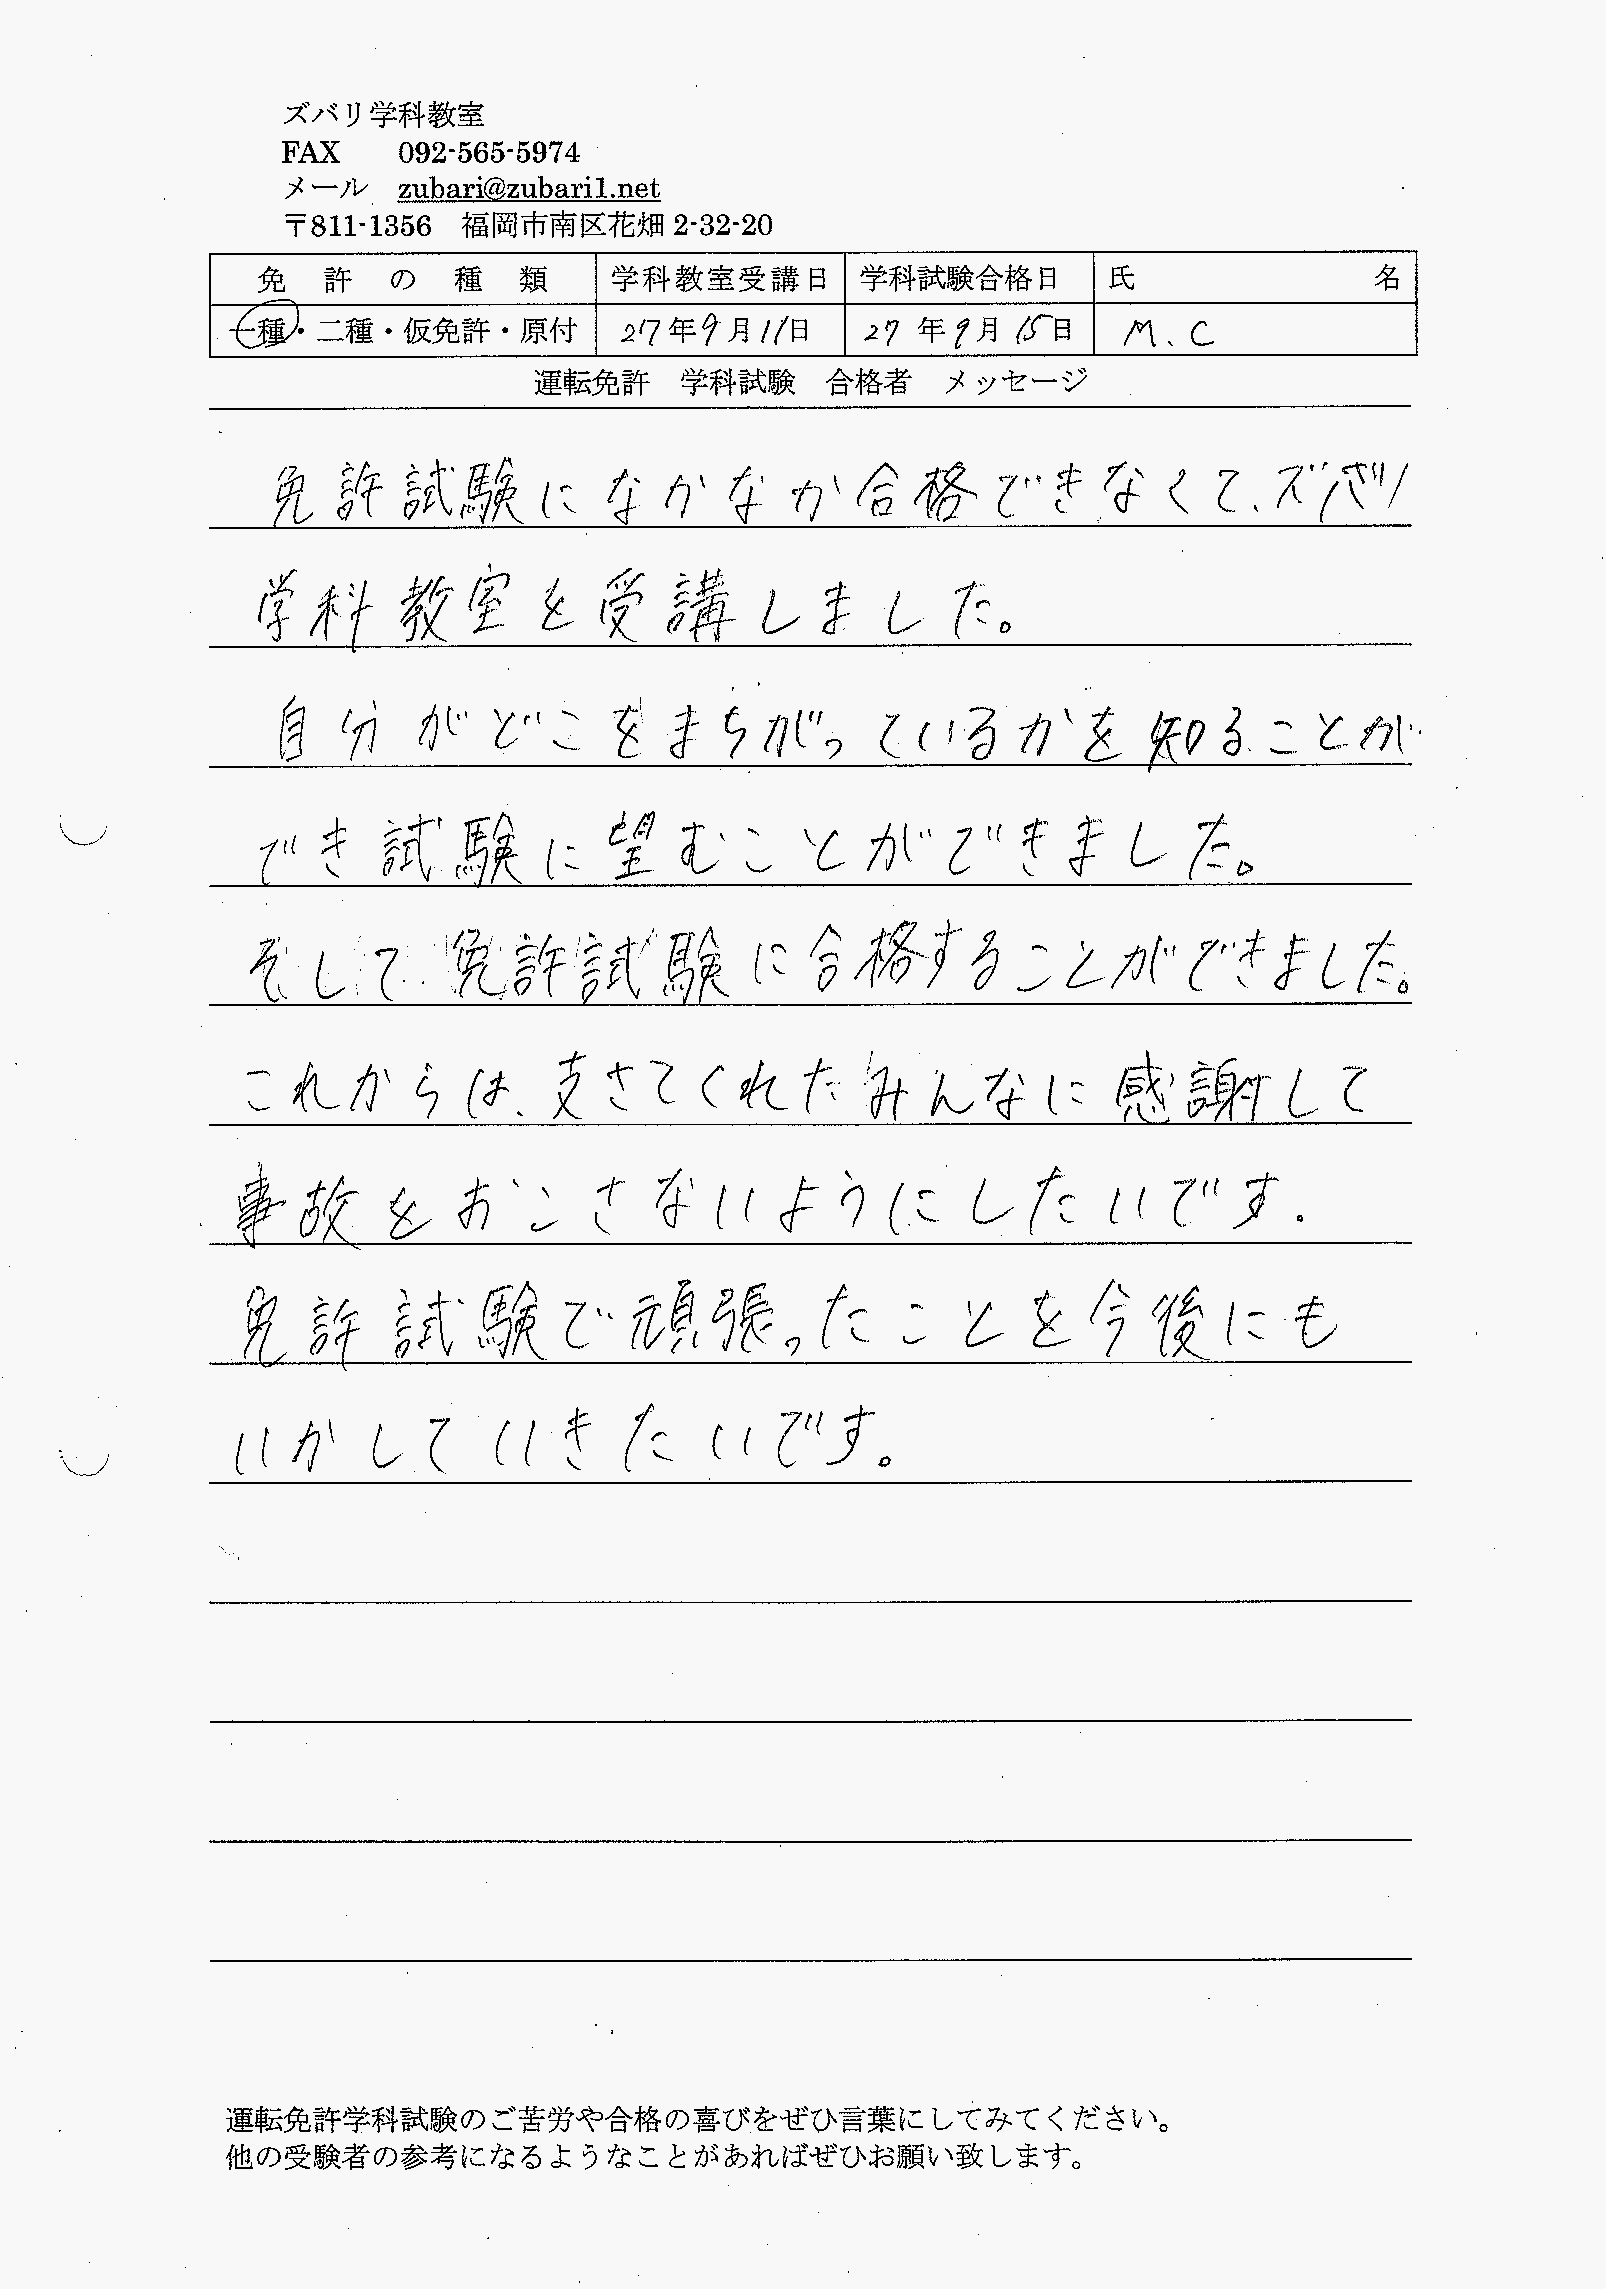 ズバリ学科教室
FAX 092-565-5974
メール zubari@zubari1.net
〒811-1356 福岡市南区花畑 2-32-20
免許の種類 学科教室受講日 学科試験合格日 氏名
一種・二種・仮免許・原付 27年9月11日 27年9月15日 M.C
運転免許 学科試験 合格者 メッセージ
免許試験になかなか合格できなくて、ズバリ
学科教室を受講しました。
自分がどこをまちがっているかを知ることが
でき試験に望むことができました。
そして免許試験に合格することができました。
これからは、支さてくれたみんなに感謝して
事故をおこさないようにしたいです.
免許試験で頑張ったことを今後にも
いかしていきたいです。
運転免許学科試験のご苦労や合格の喜びをぜひ言葉にしてみてください。
他の受験者の参考になるようなことがあればぜひお願い致します。